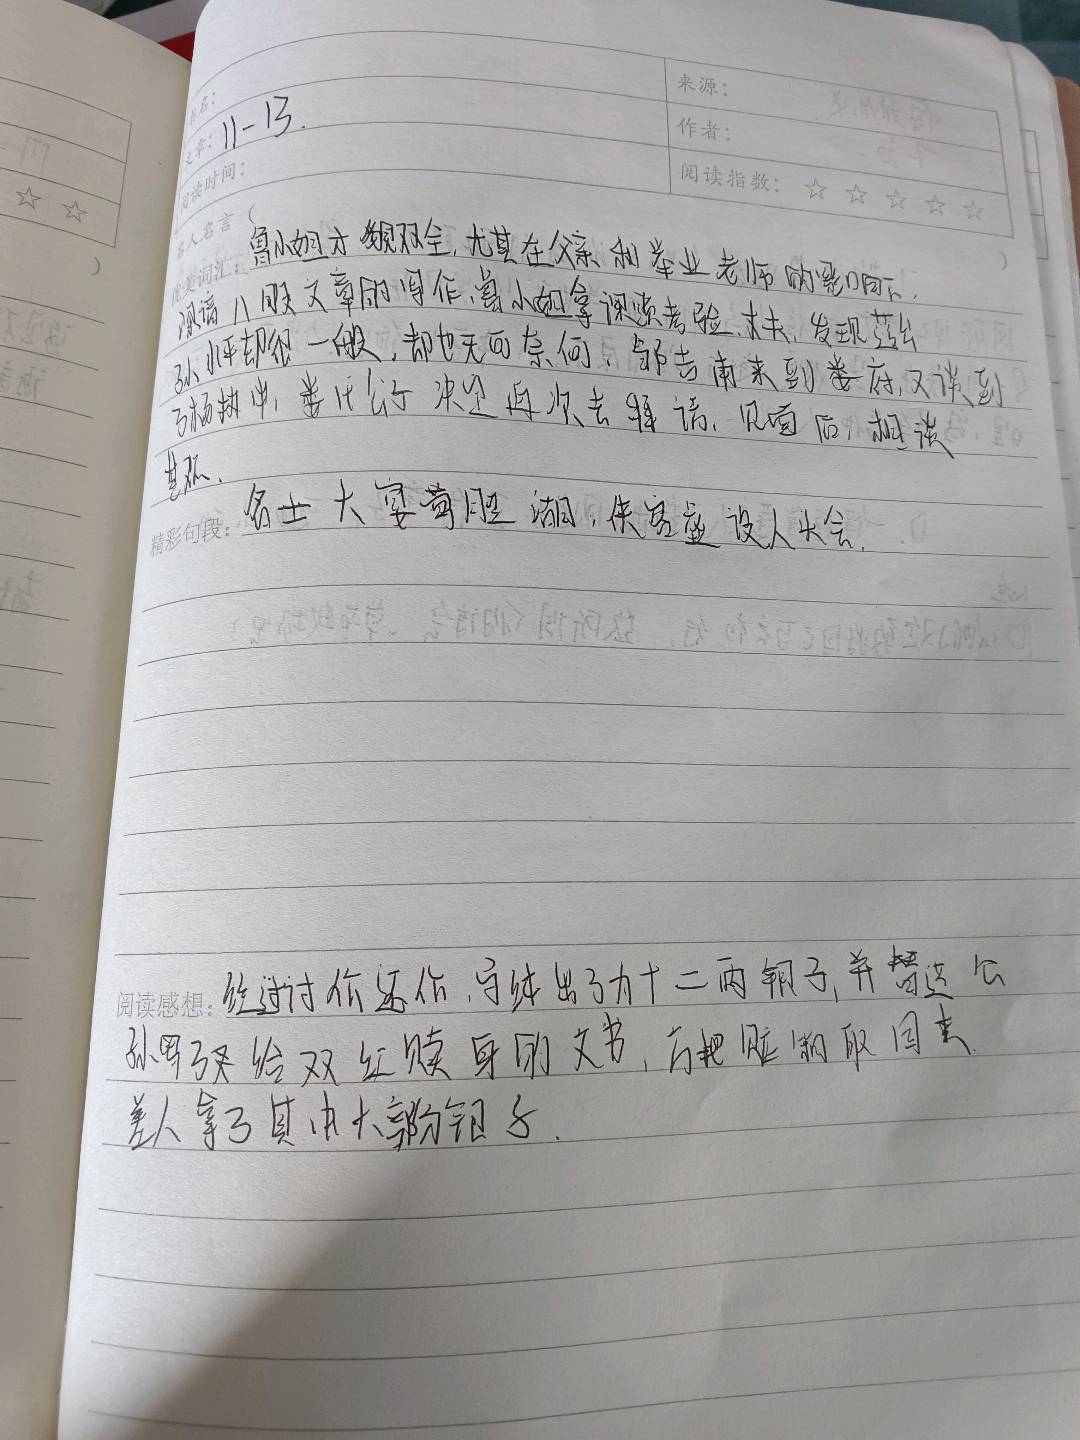 书名：
来源：
文章：11-13.
作者：
阅读时间：
阅读指数：☆ ☆ ☆ ☆ ☆
名人名言（ ）
优美词汇：鲁小姐才貌双全,尤其在父亲和举业老师的影响下,
深谙八股文章的写作,鲁小姐拿课读考验丈夫,发现蘧公
孙水平却很一般,却也无可奈何,邹吉甫来到娄府,又谈到
了杨执中,娄氏公子决定再次去拜访,见面后,相谈
甚欢.
精彩句段：名士大宴莺脰湖,侠客虚设人头会.
阅读感想：经过讨价还价,守纯出了九十二两银子,并替送公
孙 给双红赎身的文书,方把赃物取回来
差人拿了其中大部分银子.